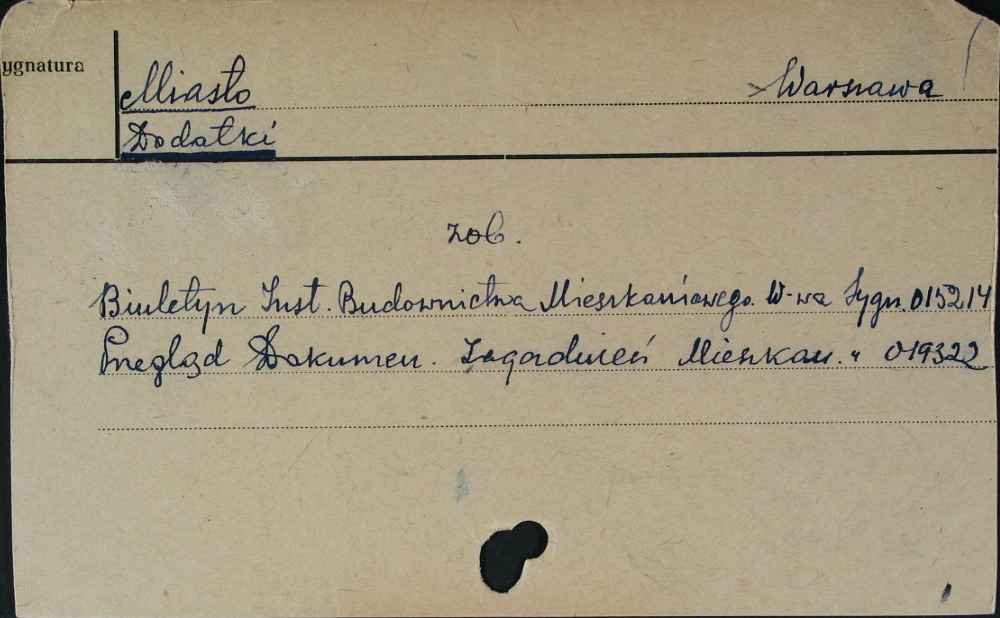 ygnatura
Miasto Warszawa
Dodatki
zob.
Biuletyn Inst. Budownictwa Mieszkaniowego. W-wa Sygn. 015214
Przegląd Dokumen. Zagadnień Mieszkan. " 019322